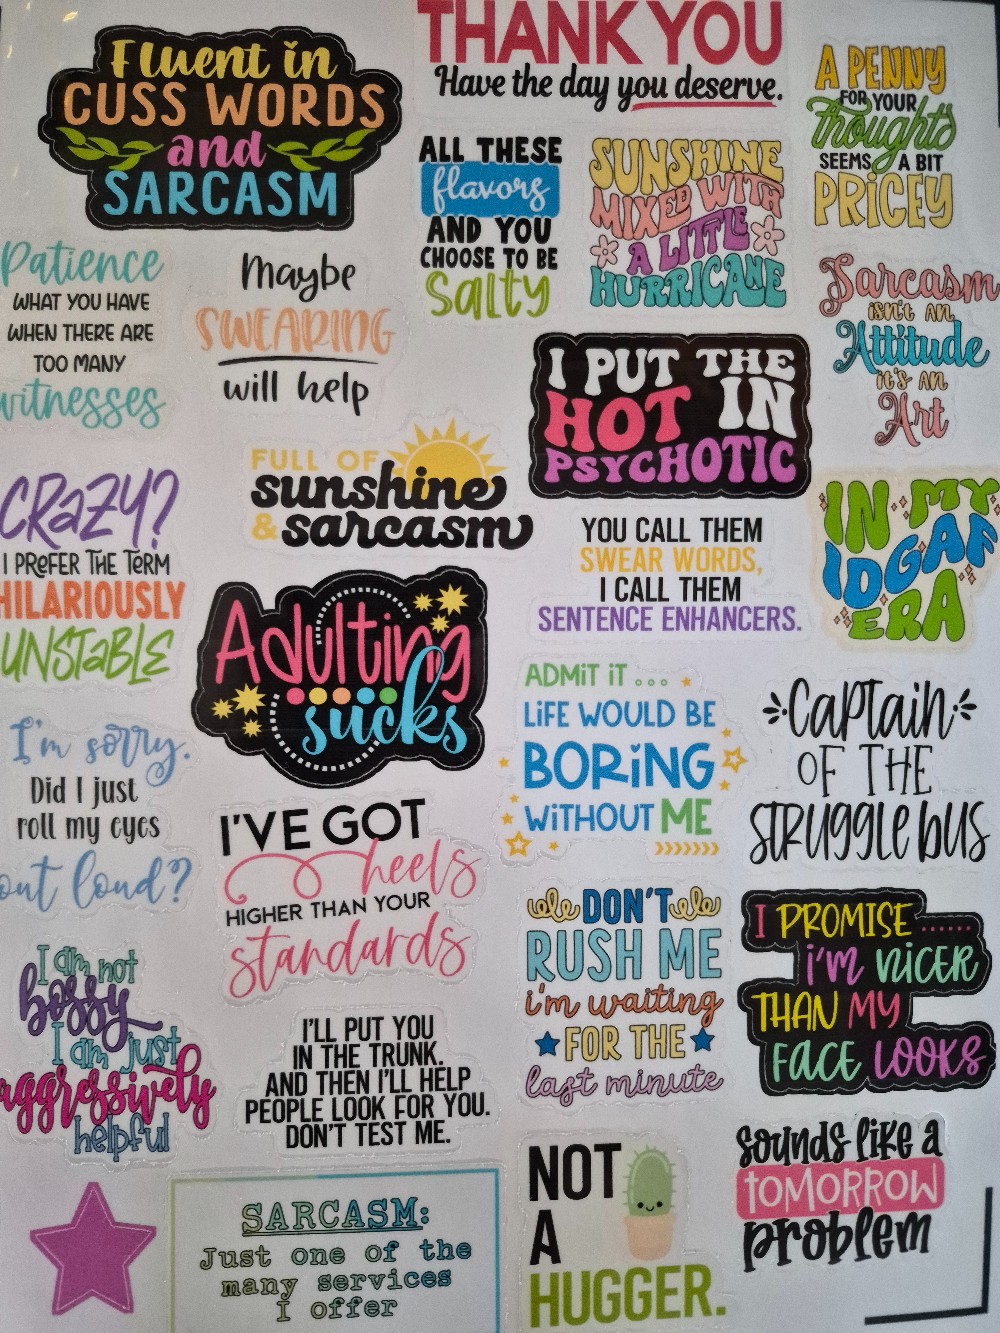 Fluent in
CUSS WORDS
and
SARCASM
THANK YOU
Have the day you deserve.
A PENNY
FOR YOUR
thoughts
SEEMS A BIT
PRICEY
ALL THESE
flavors
AND YOU
CHOOSE TO BE
Salty
SUNSHINE
MIXED WITH
A LITTLE
HURRICANE
Patience
WHAT YOU HAVE
WHEN THERE ARE
TOO MANY
witnesses
Maybe
SWEARING
will help
Sarcasm
isn't an
Attitude
it's an
Art
I PUT THE
HOT IN
PSYCHOTIC
FULL OF
sunshine
& sarcasm
CRaZY?
I PReFER THE TeRM
HILARIOUSLY
UNSTaBLE
YOU CALL THEM
SWEAR WORDS,
I CALL THEM
SENTENCE ENHANCERS.
IN MY
IDGAF
ERA
Adulting
sucks
ADMiT iT ...
LiFE WOULD BE
BORiNG
WiTHOUT ME
Captain
OF THE
STRUGGLE bUS
I'm sorry.
Did I just
roll my eyes
out loud?
I'VE GOT
heels
HIGHER THAN YOUR
standards
DON'T
RUSH ME
i'm waiting
FOR THE
last minute
I PROMISE ......
i'M NiCER
THAN MY
FACE LOOKS
I am not
bossy
I am just
aggressively
helpful
I'LL PUT YOU
IN THE TRUNK.
AND THEN I'LL HELP
PEOPLE LOOK FOR YOU.
DON'T TEST ME.
NOT
A
HUGGER.
sounds like a
TOMORROW
problem
SARCASM:
Just one of the
many services
I offer